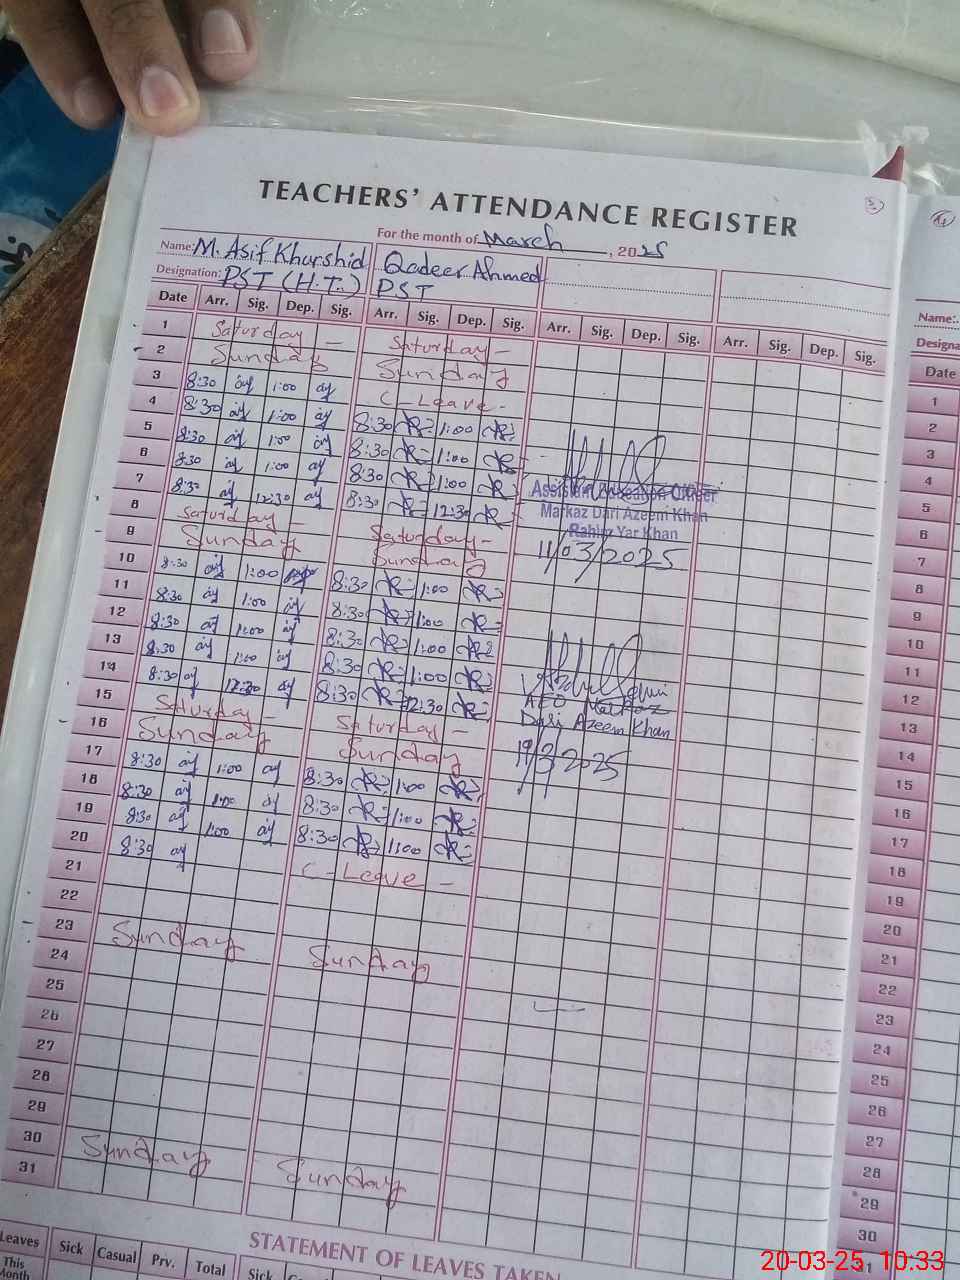 TEACHERS' ATTENDANCE REGISTER
For the month of March, 2025
Name: M. Asif Khurshid Qadeer Ahmed
Designation: PST (H.T.) PST
Date Arr. Sig. Dep. Sig. Arr. Sig. Dep. Sig. Arr. Sig. Dep. Sig. Arr. Sig. Dep. Sig.
1 Saturday - Saturday -
2 Sunday Sunday
3 8:30 1:00 C-Leave -
4 8:30 1:00 8:30 1:00
5 8:30 1:00 8:30 1:00
6 8:30 1:00 8:30 1:00
7 8:30 12:30 8:30 12:30
8 Saturday - Saturday -
9 Sunday Sunday
10 8:30 1:00 8:30 1:00
11 8:30 1:00 8:30 1:00
12 8:30 1:00 8:30 1:00
13 8:30 1:00 8:30 1:00
14 8:30 12:30 8:30 12:30
15 Saturday - Saturday -
16 Sunday Sunday
17 8:30 1:00 8:30 1:00
18 8:30 1:00 8:30 1:00
19 8:30 1:00 8:30 1:00
20 8:30 C-Leave -
21
22
23 Sunday Sunday
24
25
26
27
28
29
30 Sunday Sunday
31
Assistant Education Officer
Markaz Dari Azeem Khan
Rahim Yar Khan
11/03/2025
AEO Markaz
Dari Azeem Khan
19/3/2025
STATEMENT OF LEAVES TAKEN
Leaves Sick Casual Prv. Total Sick
This
Month
Name:
Designa
Date
1
2
3
4
5
6
7
8
9
10
11
12
13
14
15
16
17
18
19
20
21
22
23
24
25
26
27
28
29
30
31
20-03-25 10:33